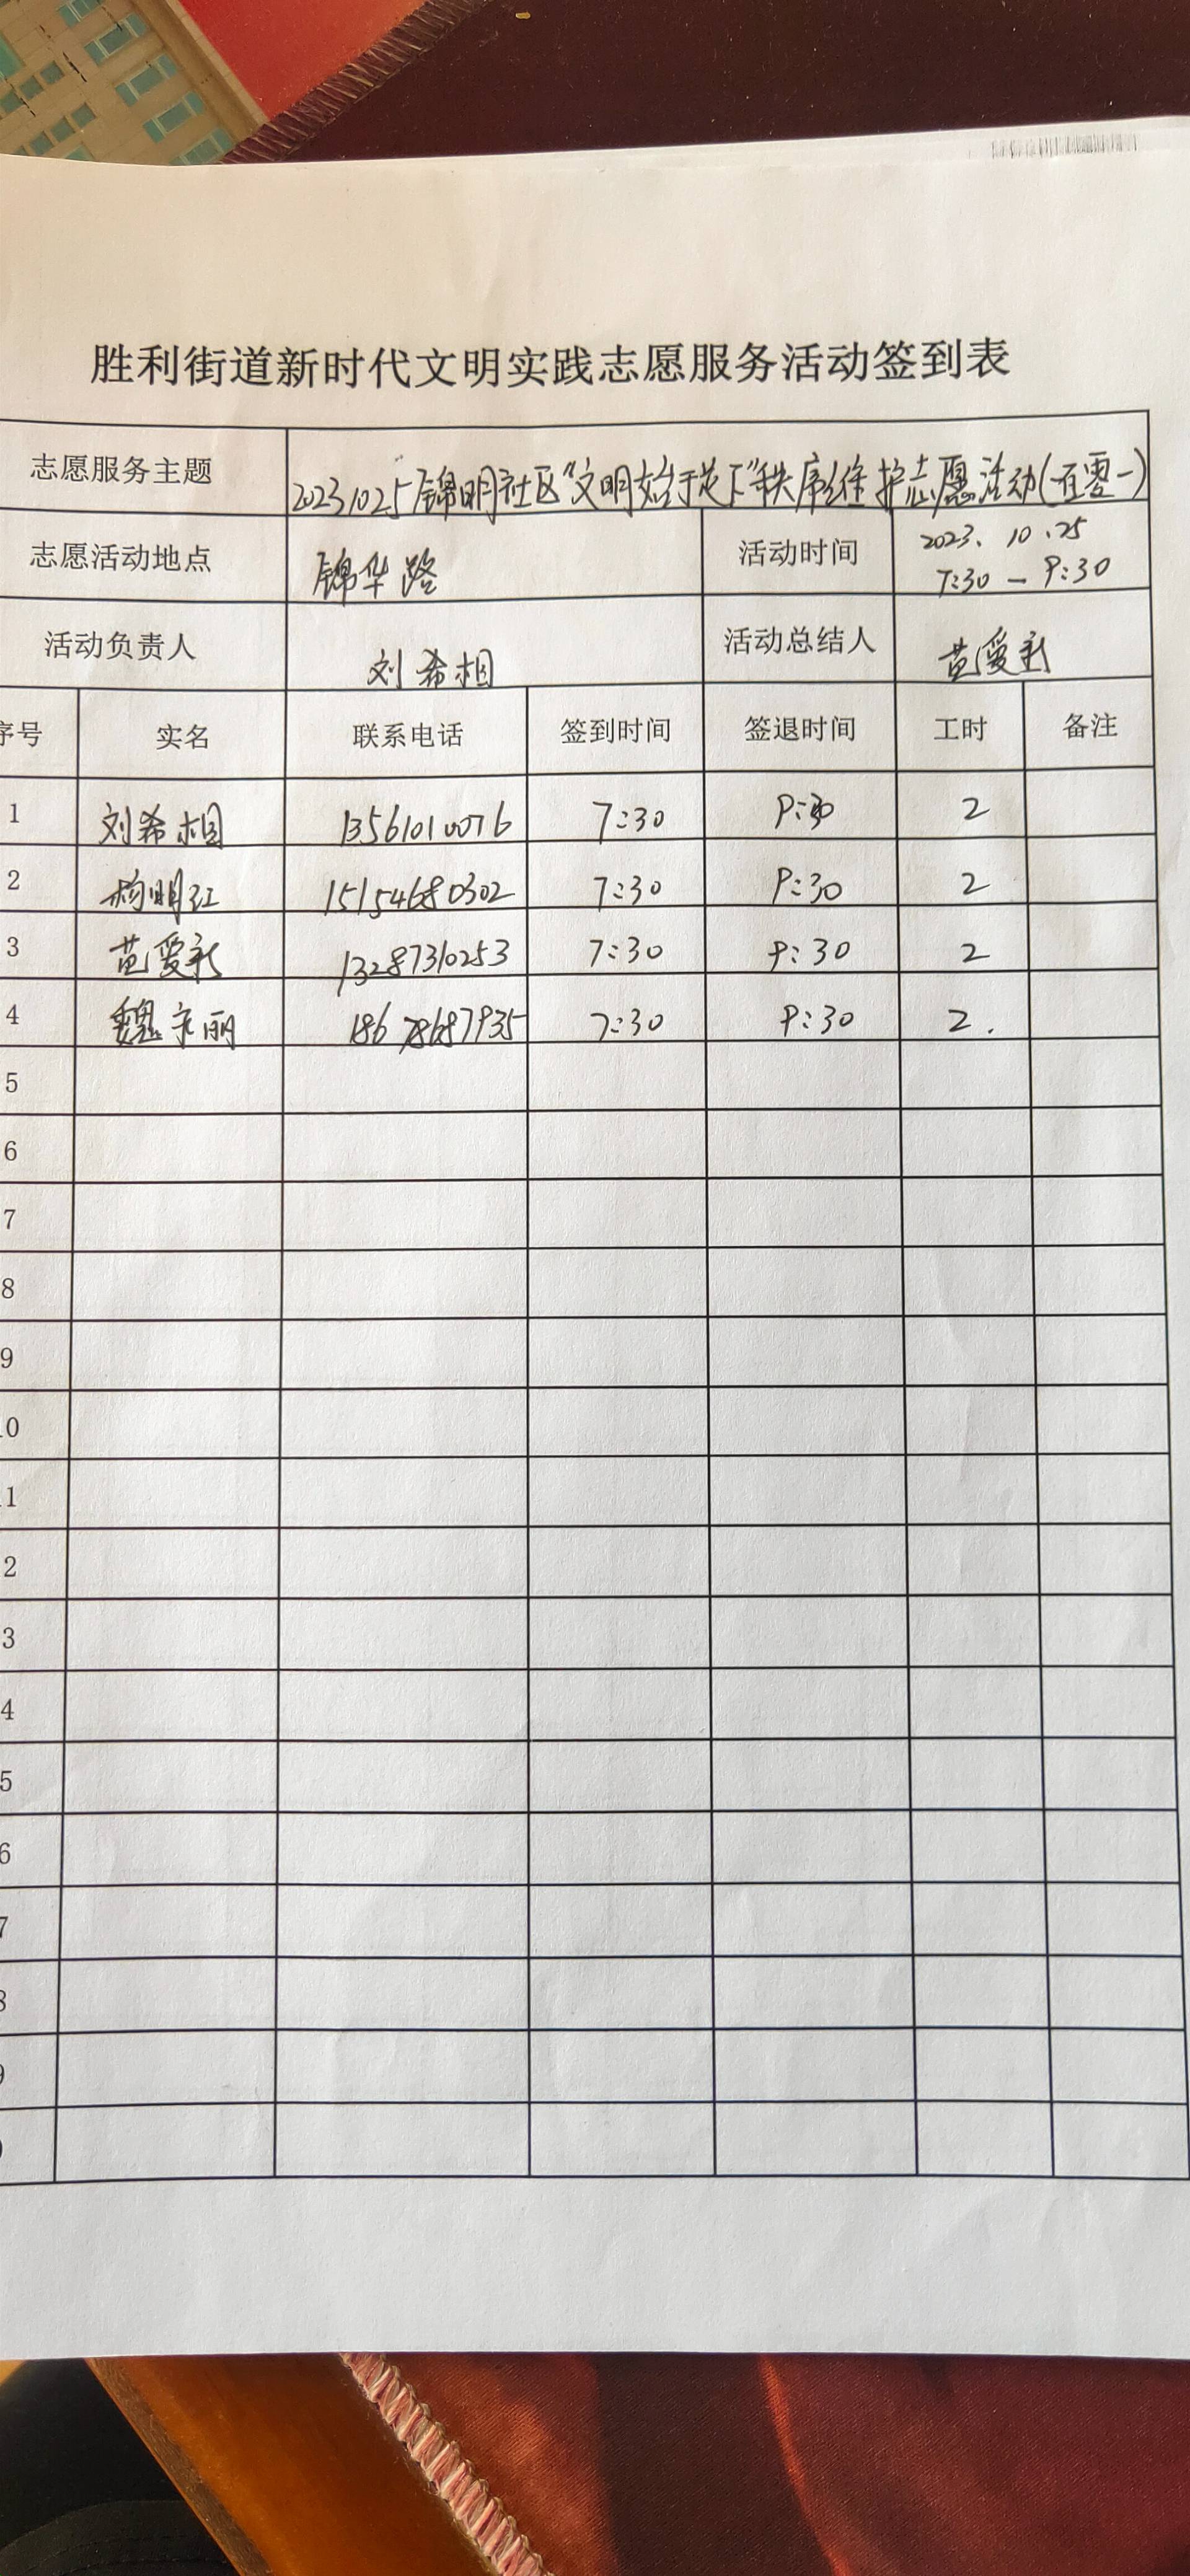 胜利街道新时代文明实践志愿服务活动签到表
志愿服务主题 20231025锦明社区“文明始于足下”秩序维护志愿活动(五零一)
志愿活动地点 锦华路 活动时间 2023、10、25
7:30 — 9:30
活动负责人 刘希相 活动总结人 黄爱新
序号 实名 联系电话 签到时间 签退时间 工时 备注
1 刘希相 13561010076 7:30 9:30 2
2 杨明红 15154680302 7:30 9:30 2
3 黄爱新 13287310253 7:30 9:30 2
4 魏 丽 18678687935 7:30 9:30 2.
5
6
7
8
9
10
11
2
3
4
5
6
7
8
9